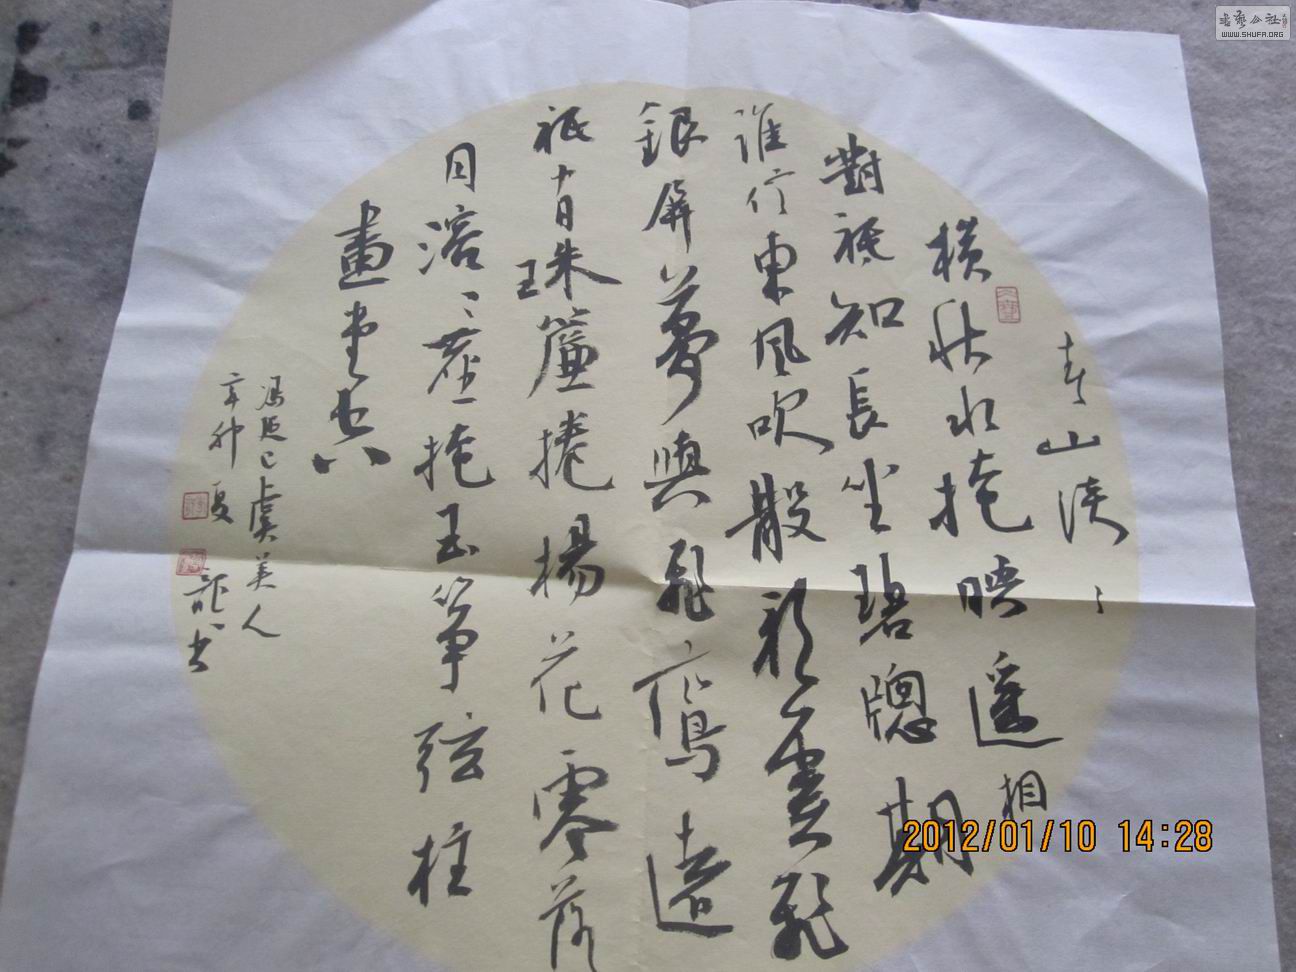 春山淡〻
橫秋水掩映遥相
對祇知長坐碧牕期
誰信東風吹散彩雲飛
銀屏夢與飛鸞遠
祇有珠簾捲楊花零落
月溶〻塵掩玉箏弦柱
畫堂空
馮延巳虞美人
辛卯夏 书
2012/01/10 14:28
WWW.SHUFA.ORG